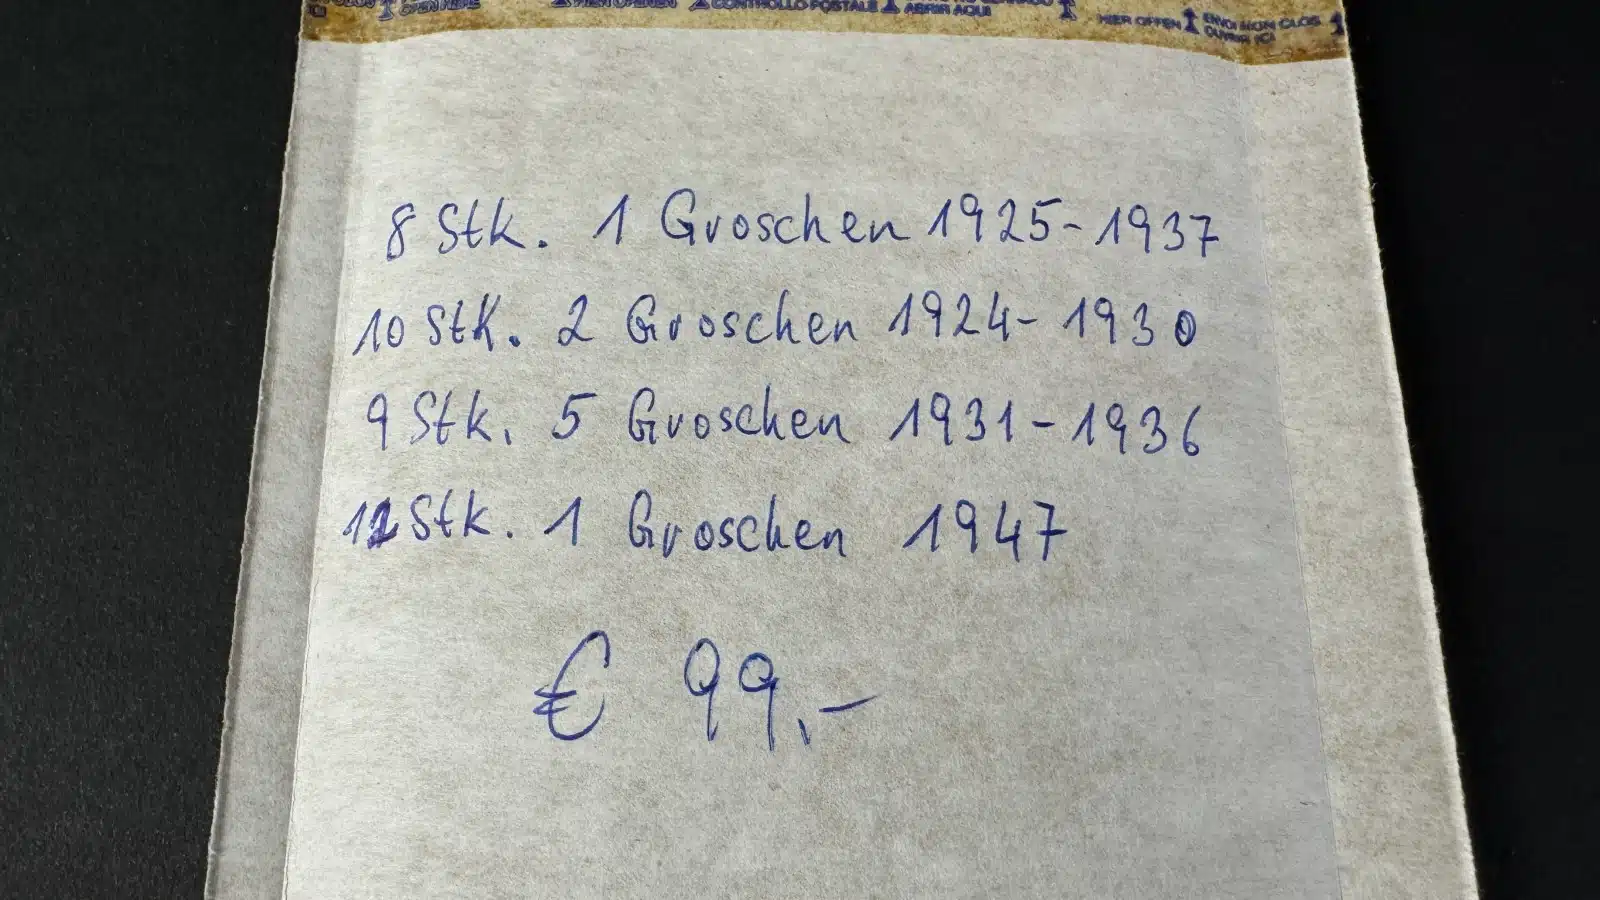 OPEN HERE
HIER ÖFFNEN
CONTROLLO POSTALE
ABRIR AQUI
HIER ÖFFNEN
ENVOI NON CLOS
OUVRIR ICI
8 Stk. 1 Groschen 1925-1937
10 Stk. 2 Groschen 1924-1930
9 Stk. 5 Groschen 1931-1936
12 Stk. 1 Groschen 1947
€ 99,-